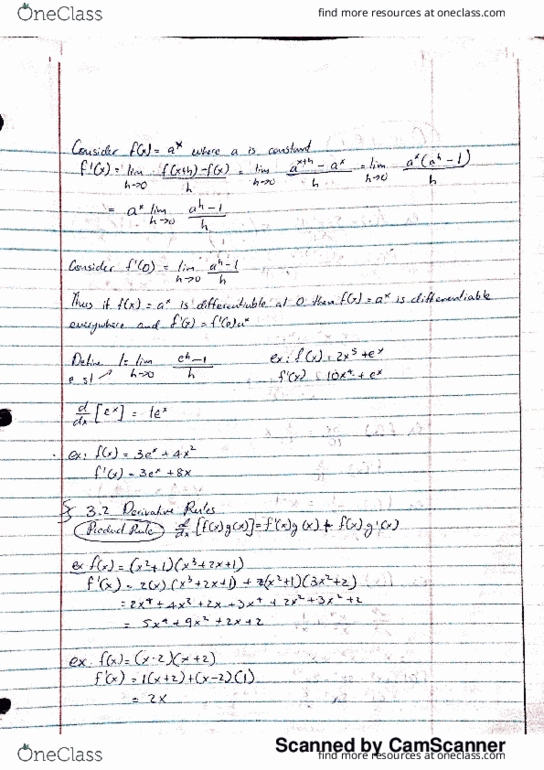 OneClass
find more resources at oneclass.com
Consider f(x) = a^x where a is constant
f'(x) = lim h→0 f(x+h)-f(x)/h = lim h→0 a^(x+h) - a^x/h = lim h→0 a^x(a^h - 1)/h
= a^x lim h→0 a^h - 1/h
Consider f'(0) = lim h→0 a^h - 1/h
Thus if f(x) = a^x is differentiable at 0 then f(x) = a^x is differentiable
everywhere and f'(x) = f'(0)a^x
Define 1 = lim h→0 e^h - 1/h
e st
ex: f(x) = 2x^5 + e^x
f'(x) = 10x^4 + e^x
d/dx [e^x] = 1e^x
ex: f(x) = 3e^x + 4x^2
f'(x) = 3e^x + 8x
§ 3.2 Derivative Rules
Product Rule d/dx [f(x)g(x)] = f'(x)g(x) + f(x)g'(x)
ex f(x) = (x^2+1)(x^3+2x+1)
f'(x) = 2(x)(x^3+2x+1) + (x^2+1)(3x^2+2)
= 2x^4 + 4x^2 + 2x + 3x^4 + 2x^2 + 3x^2 + 2
= 5x^4 + 9x^2 + 2x + 2
ex. f(x) = (x-2)(x+2)
f'(x) = 1(x+2) + (x-2)(1)
= 2x
Scanned by CamScanner
OneClass
find more resources at oneclass.com